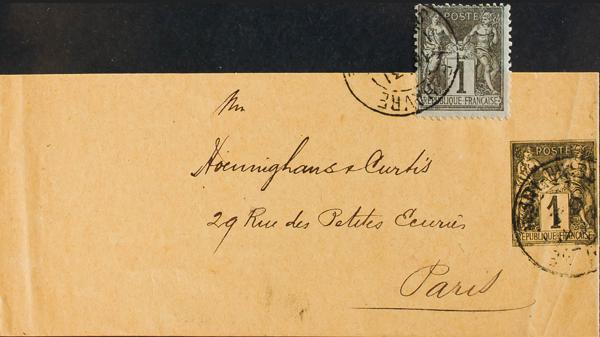 POSTE
1
REPUBLIQUE FRANÇAISE
HAVRE
Mrs
Hoeninghans & Curtis
29 Rue des Petites Ecuries
Paris
POSTE
1
REPUBLIQUE FRANÇAISE